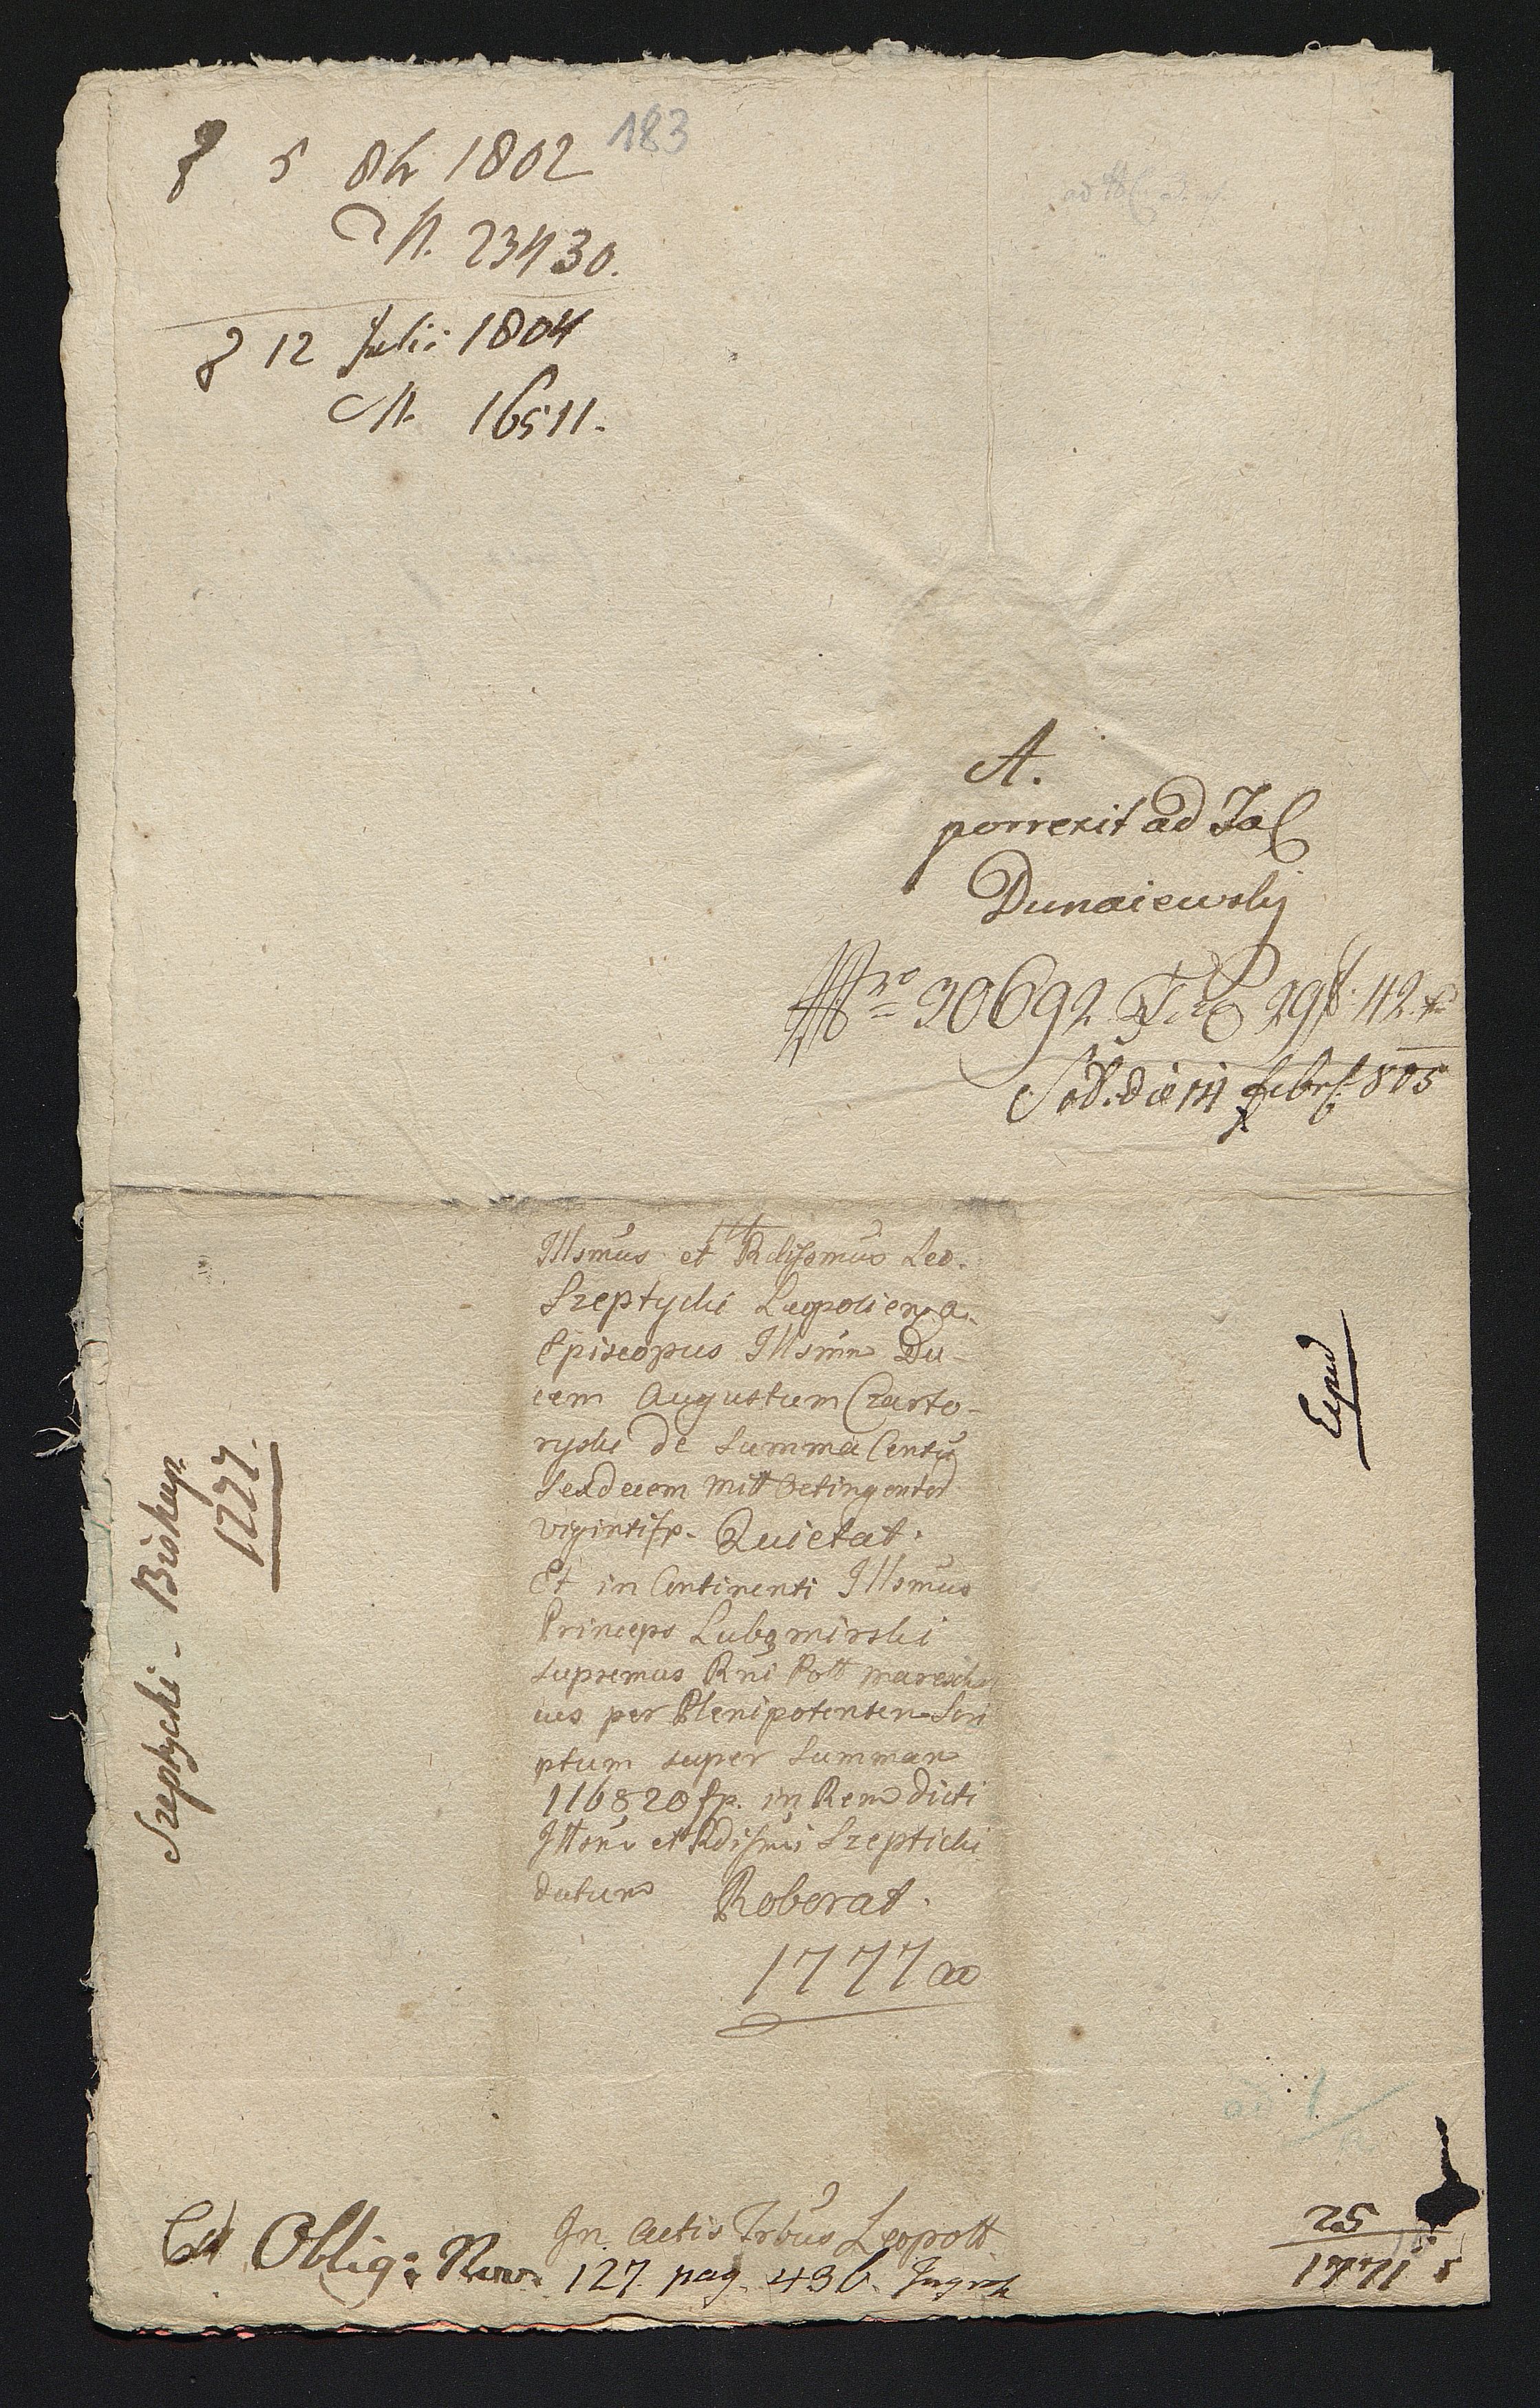 5 8br 1802
183
N. 23430.
12 Julii 1804
N. 16511.
A.
porrexit ad Tab
Dunaiewsky
Nro 30692 29 f. 42 x
die 14 febr 805
Illsmus et Rdissmus Leo
Szeptycki Leopoliens
Episcopus Illsmum Du-
cem Augustum Czarto-
ryski de Summa Centu
Sexdecem mill Octingentor
viginti fp. Quietat.
Et in Continenti Illsmus
Princeps Lubomirski
supremus Rni Poll mareschal
cus per Plenipotentem Scri
ptum super Summam
116820 fp. in Rem dicti
Illsmi et Rdissmi Szepticki
datum Roborat.
1777 ao
Szeptycki - Biskup.
1777.
Exped
In Actis Trbus Leopoll
Oblig: Nov. 127. pag. 436. Ingross
25
1771